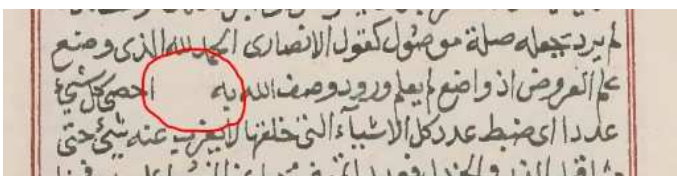 لم يرد بجعله صلة موصول كقول الانصارى الحمد لله الذى وضع
علم العروض اذ واضع لم يعلم ورود وصف الله به احصى كل شئ
عددا اى ضبط عدد كل الاشياء التى خلقها لا يعزب عنه شئ حتى